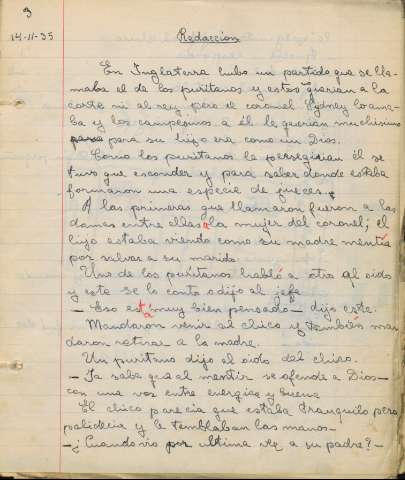 3
14-11-35
Redaccion
En Inglaterra hubo un partido que se lla-
maba el de los puritanos y estos querian a la
corte ni al rey, pero el coronel Sydney lo ama-
ba y los campesinos a él le querian muchisimo
para su hijo era como un Dios.
Como los puritanos le perseguian él se
tuvo que esconder y para saber donde estaba
formaron una especie de jueces.
A las primeras que llamaron fueron a las
damas entre ellas a la mujer del coronel; el
hijo estaba viendo como su madre mentia
por salvar a su marido.
Uno de los puritanos habló a otro al oido
y este se lo conto o dijo al jefe
— Eso está muy bien pensado — dijo este.
Mandaron venir al chico y tambien man-
daron retirar a la madre.
Un puritano dijo al oido del chico.
— Ya sabe que al mentir se ofende a Dios —
con una voz entre energica y buena
El chico parecia que estaba tranquilo pero
palidecia y le temblaban las manos —
— ¿Cuando vio por ultima vez a su padre? —